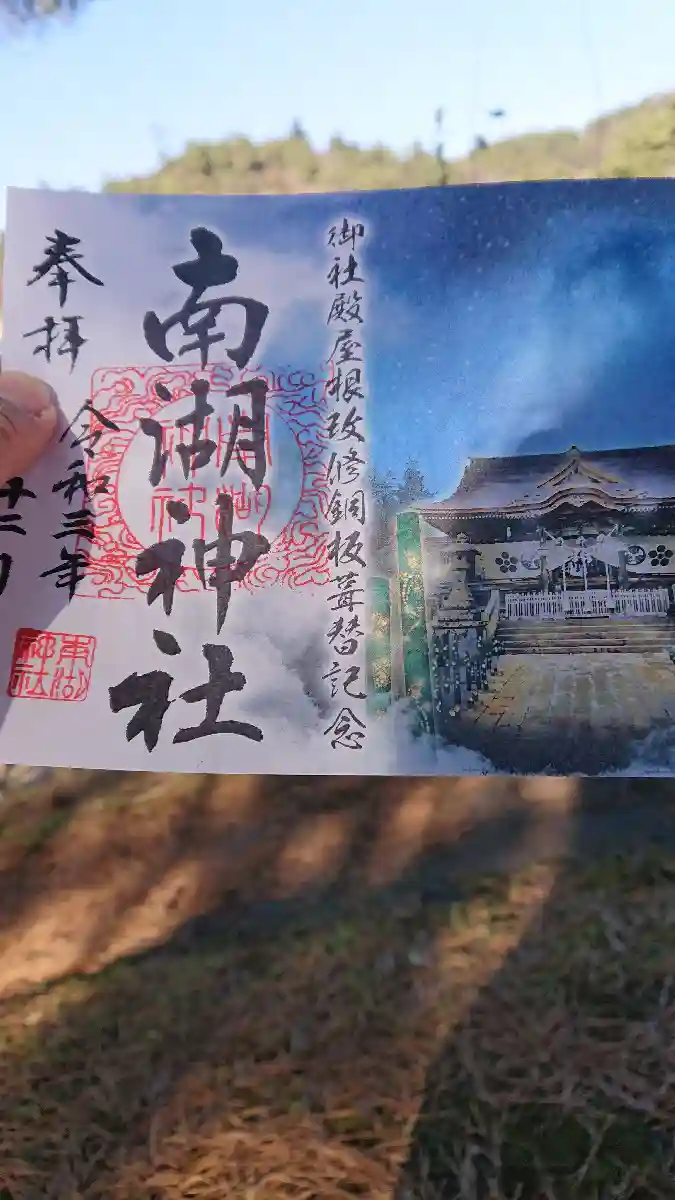 御社殿屋根改修銅板葺替記念
南湖神社
奉拝
令和三年
十二月
南湖神社
南湖神社